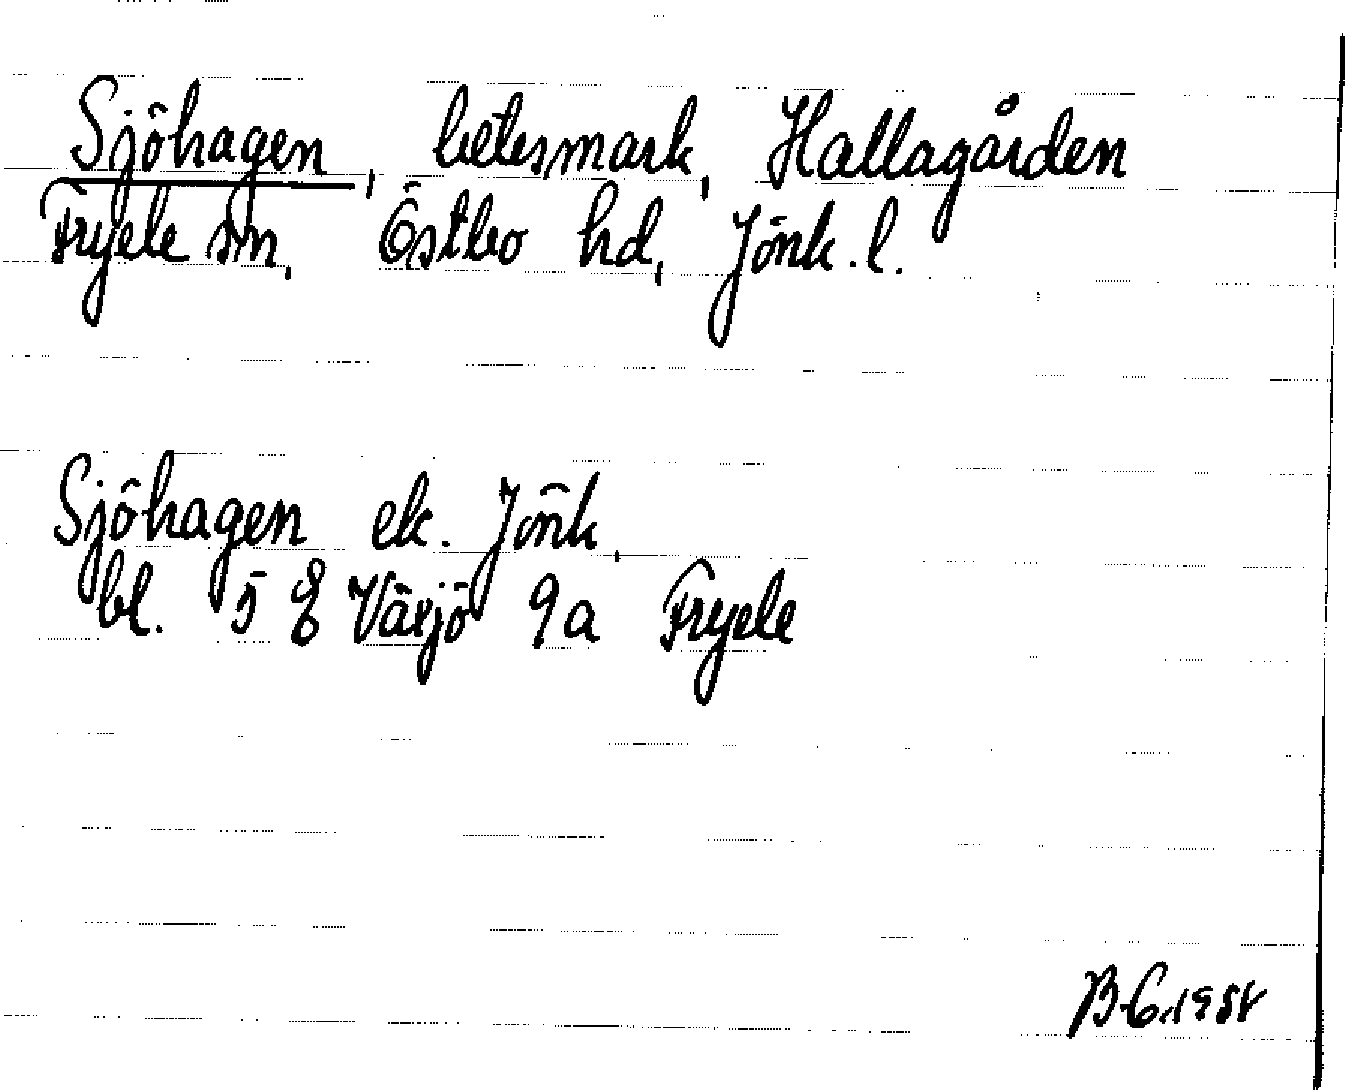 Sjöhagen, betesmark, Hallagården
Fryele sn, Östbo hd, Jönk. l.
Sjöhagen ek. Jönk,
bl. 5 E Växjö 9a Fryele